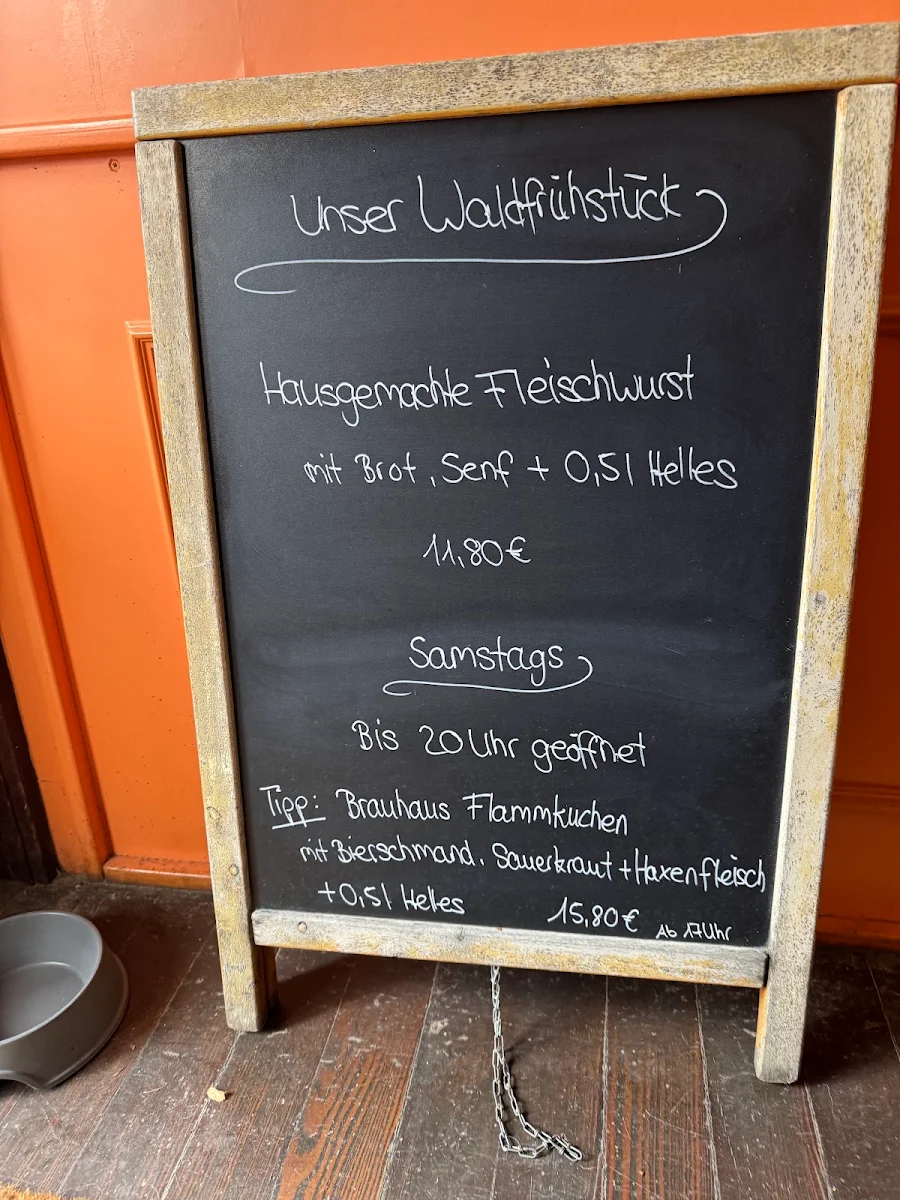 Unser Waldfrühstück
Hausgemachte Fleischwurst
mit Brot, Senf + 0,5l Helles
11,80€
Samstags
Bis 20 Uhr geöffnet
Tipp: Brauhaus Flammkuchen
mit Bierschmand, Sauerkraut + Haxenfleisch
+ 0,5l Helles 15,80€ Ab 17 Uhr